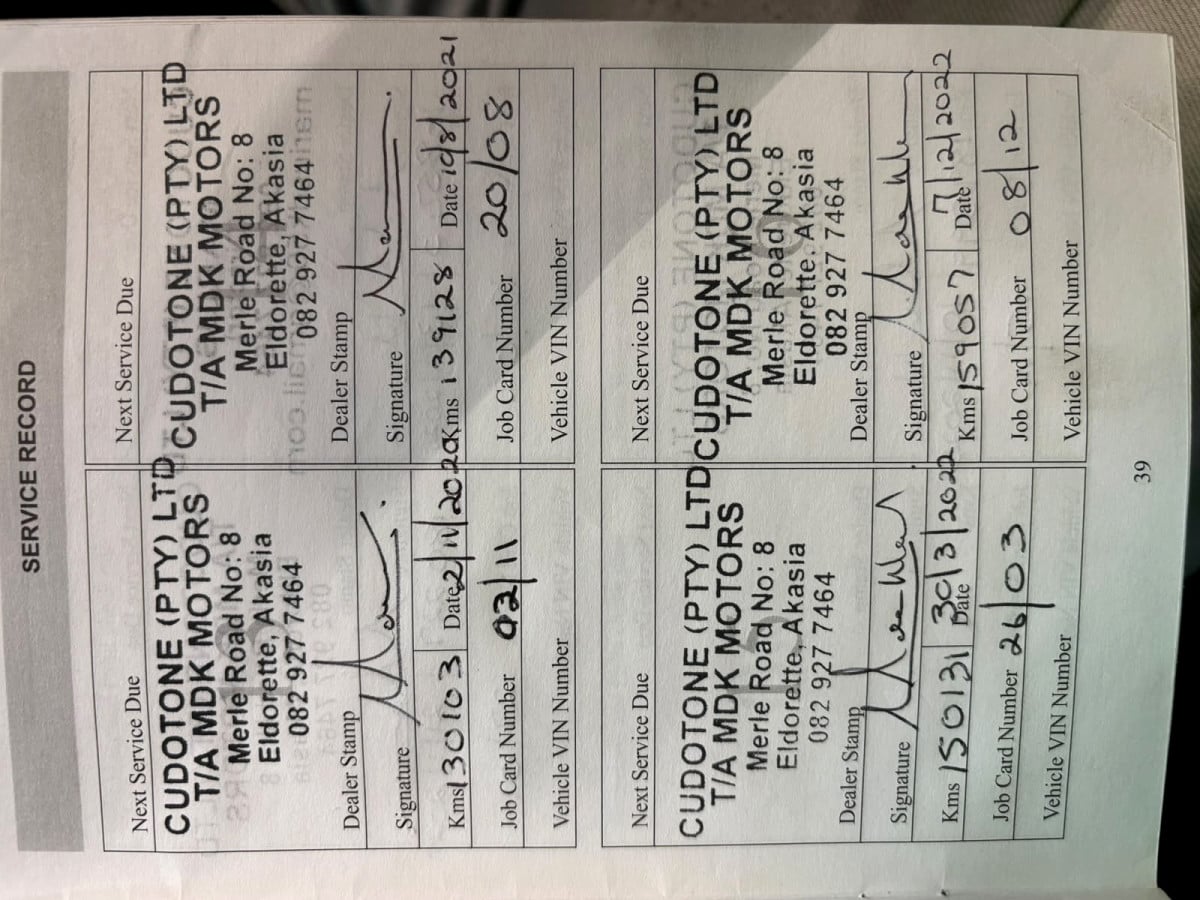 SERVICE RECORD
Next Service Due
CUDOTONE (PTY) LTD
T/A MDK MOTORS
Merle Road No: 8
Eldorette, Akasia
082 927 7464
Dealer Stamp
Signature
Kms 130103 Date 2/11/2020
Job Card Number 02/11
Vehicle VIN Number
Next Service Due
CUDOTONE (PTY) LTD
T/A MDK MOTORS
Merle Road No: 8
Eldorette, Akasia
082 927 7464
Dealer Stamp
Signature
Kms 139128 Date 10/8/2021
Job Card Number 20/08
Vehicle VIN Number
Next Service Due
CUDOTONE (PTY) LTD
T/A MDK MOTORS
Merle Road No: 8
Eldorette, Akasia
082 927 7464
Dealer Stamp
Signature
Kms 150131 Date 30/3/2022
Job Card Number 26/03
Vehicle VIN Number
Next Service Due
CUDOTONE (PTY) LTD
T/A MDK MOTORS
Merle Road No: 8
Eldorette, Akasia
082 927 7464
Dealer Stamp
Signature
Kms 159057 Date 7/12/2022
Job Card Number 08/12
Vehicle VIN Number
39